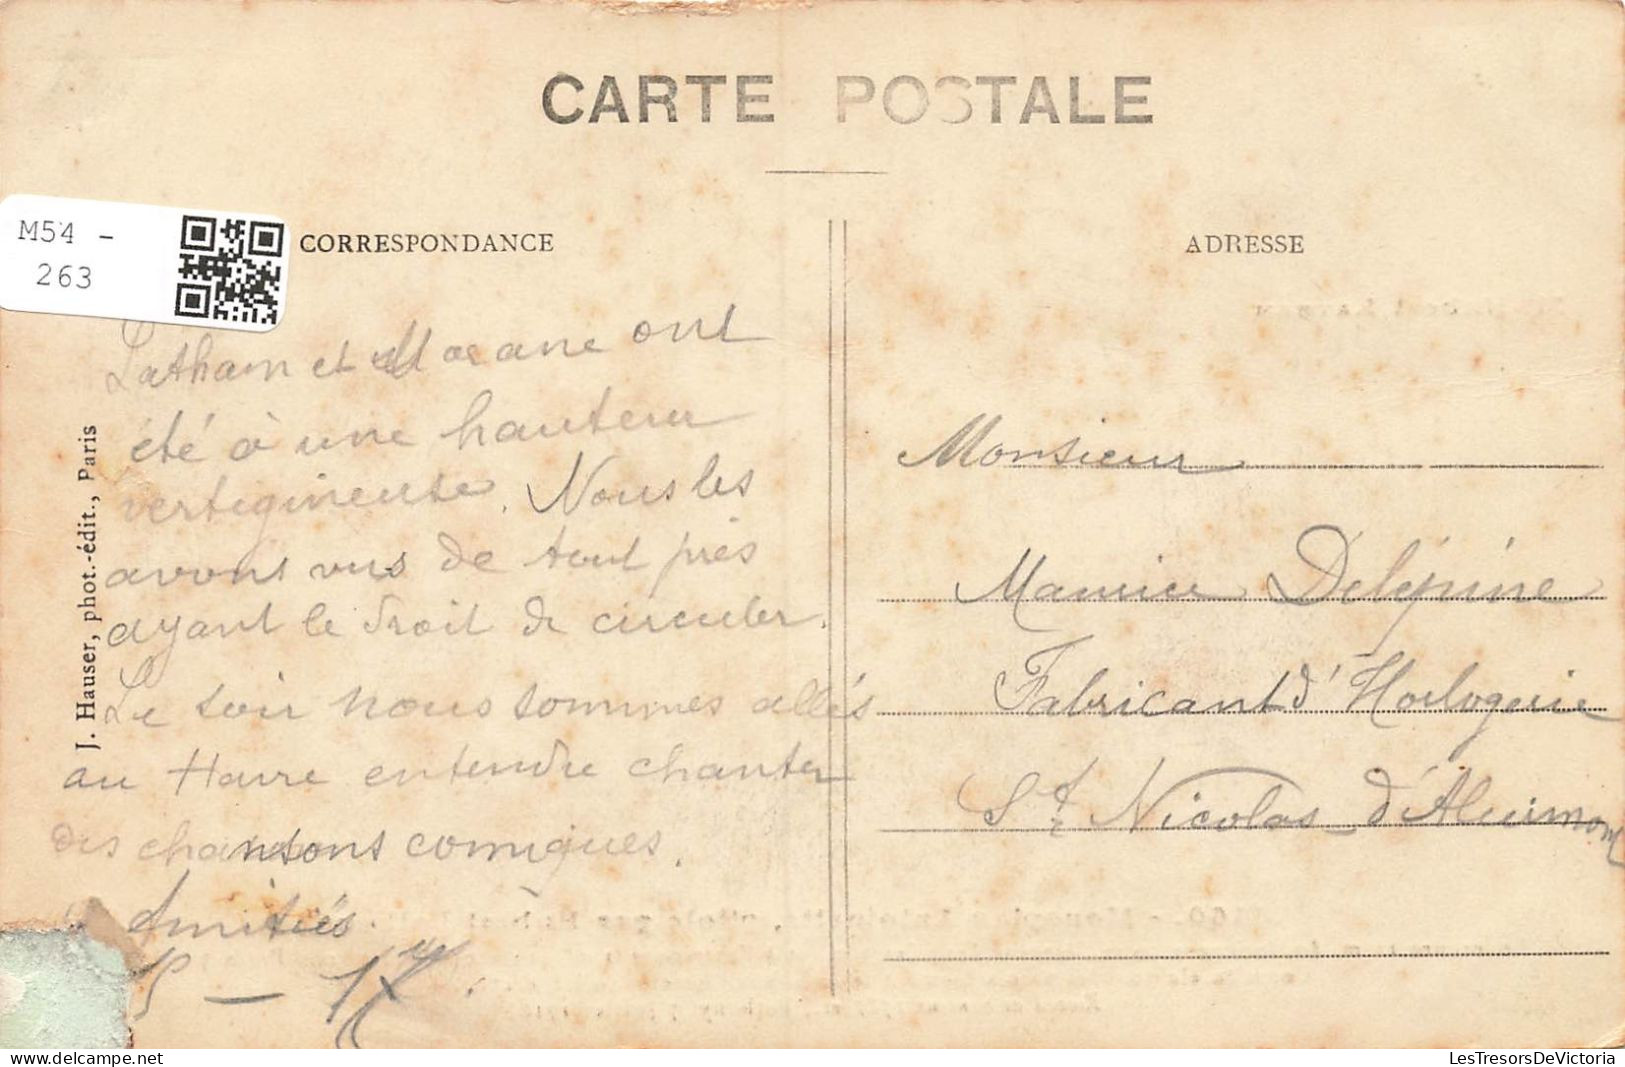 CARTE POSTALE
M54 -
263
CORRESPONDANCE
ADRESSE
J. Hauser, phot.-édit., Paris
Latham et Morane ont
été à une hauteur
vertigineuse. Nous les
avons vus de tout près
ayant le droit de circuler.
Le soir nous sommes allés
au Havre entendre chanter
des chansons comiques.
Amitiés
Monsieur
Maurice Delépine
Fabricant d'Horlogerie
St Nicolas d'Aliermont
LesTresorsDeVictoria.com